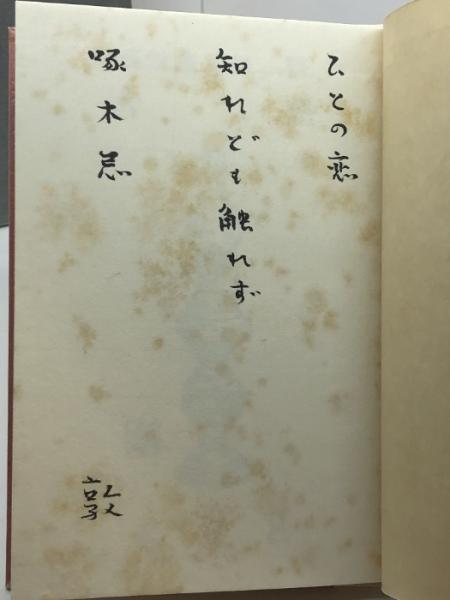 ひとの恋
知れども触れず
啄木忌
敦